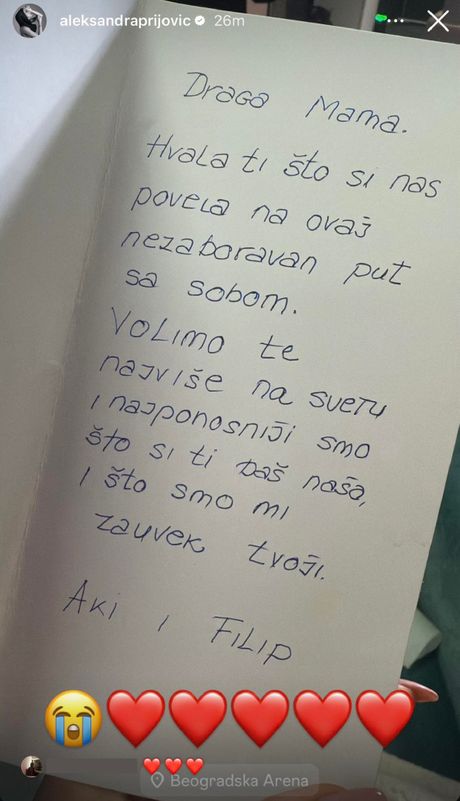 aleksandraprijovic 26m
Draga Mama.
Hvala ti što si nas
povela na ovaj
nezaboravan put
sa sobom.
Volimo te
najviše na svetu
i najponosniji smo
što si ti baš naša,
i što smo mi
zauvek tvoji.
Aki i Filip
Beogradska Arena